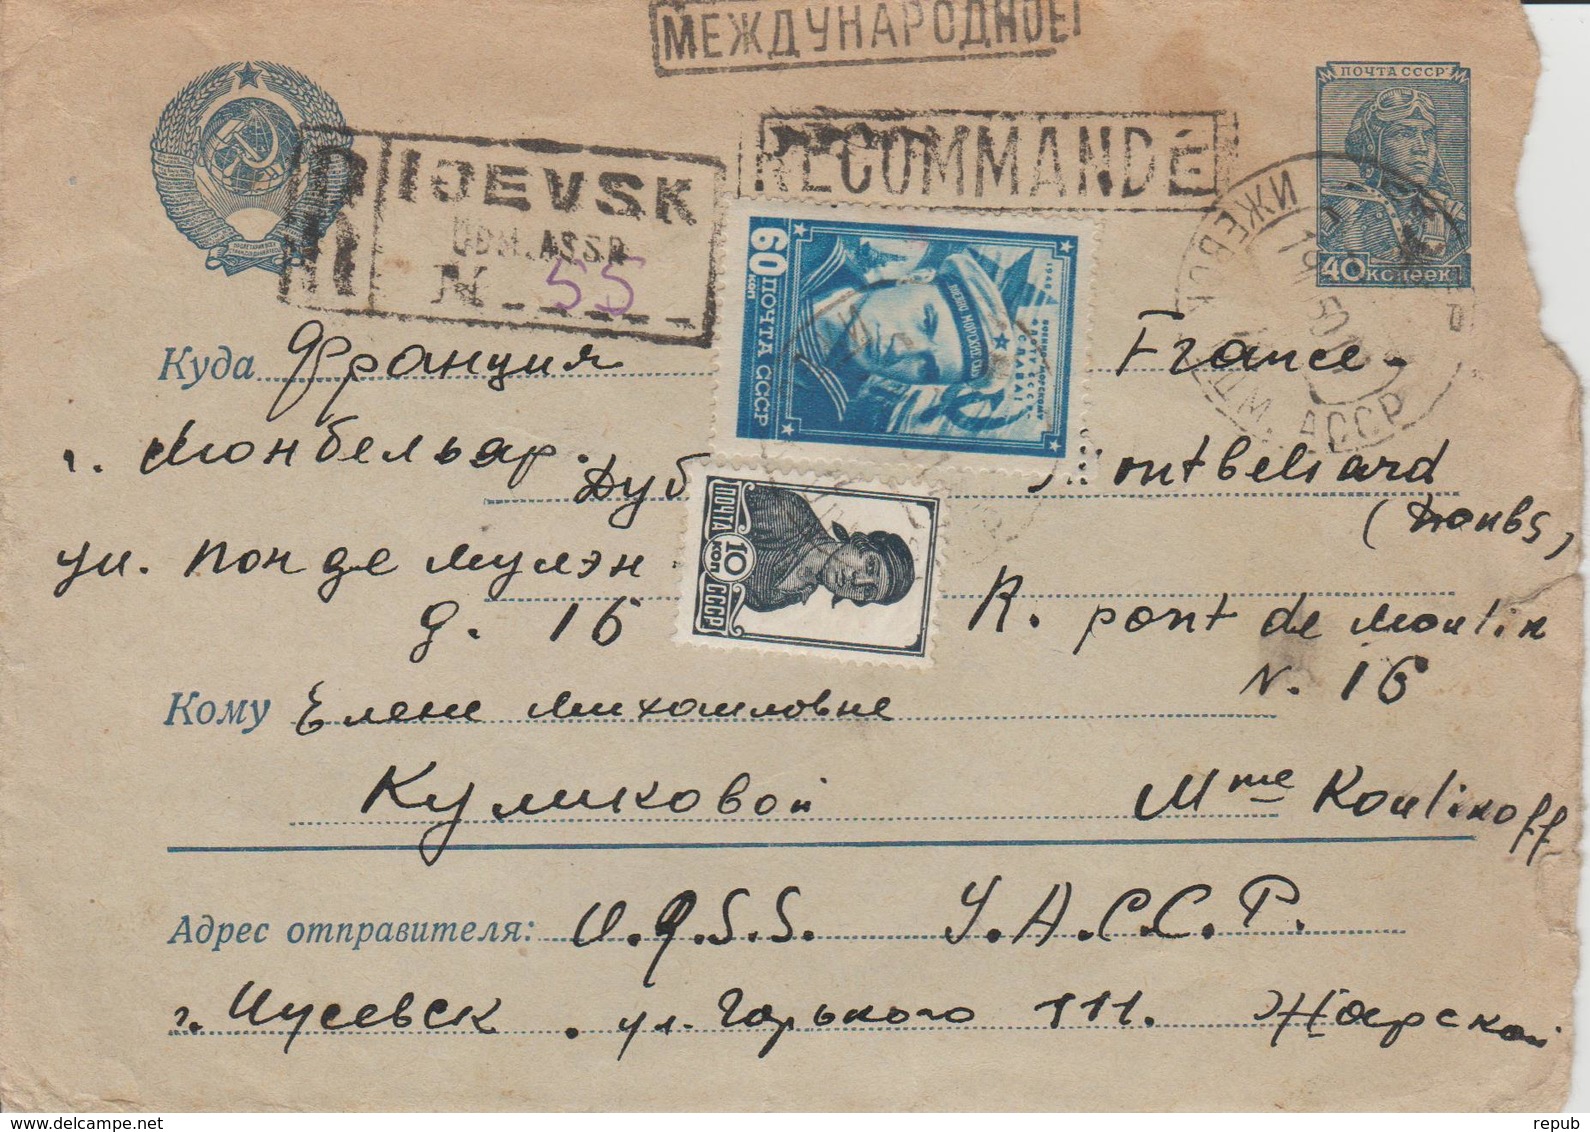 МЕЖДУНАРОДНОЕ
ПОЧТА СССР
RECOMMANDÉ
R IJEVSK
UDM. ASSR
N 55
40 копеек
ИЖЕВСК УДМ. АССР
60 коп ПОЧТА СССР
1948
ВОЕННО-МОРСКОМУ ФЛОТУ СССР СЛАВА!
Куда Франция France.
г. Монбельяр. Montbeliard
Дуб (Doubs)
ул. Пон де мулэн R. pont de Moulin
д. 16 N. 16
ПОЧТА 10 коп СССР
Кому Елене Михайловне
Куликовой Mme Koulikoff
Адрес отправителя: U.R.S.S. У.А.С.С.Р.
г. Ижевск. ул. Горького 111.
delcampe.net
repub